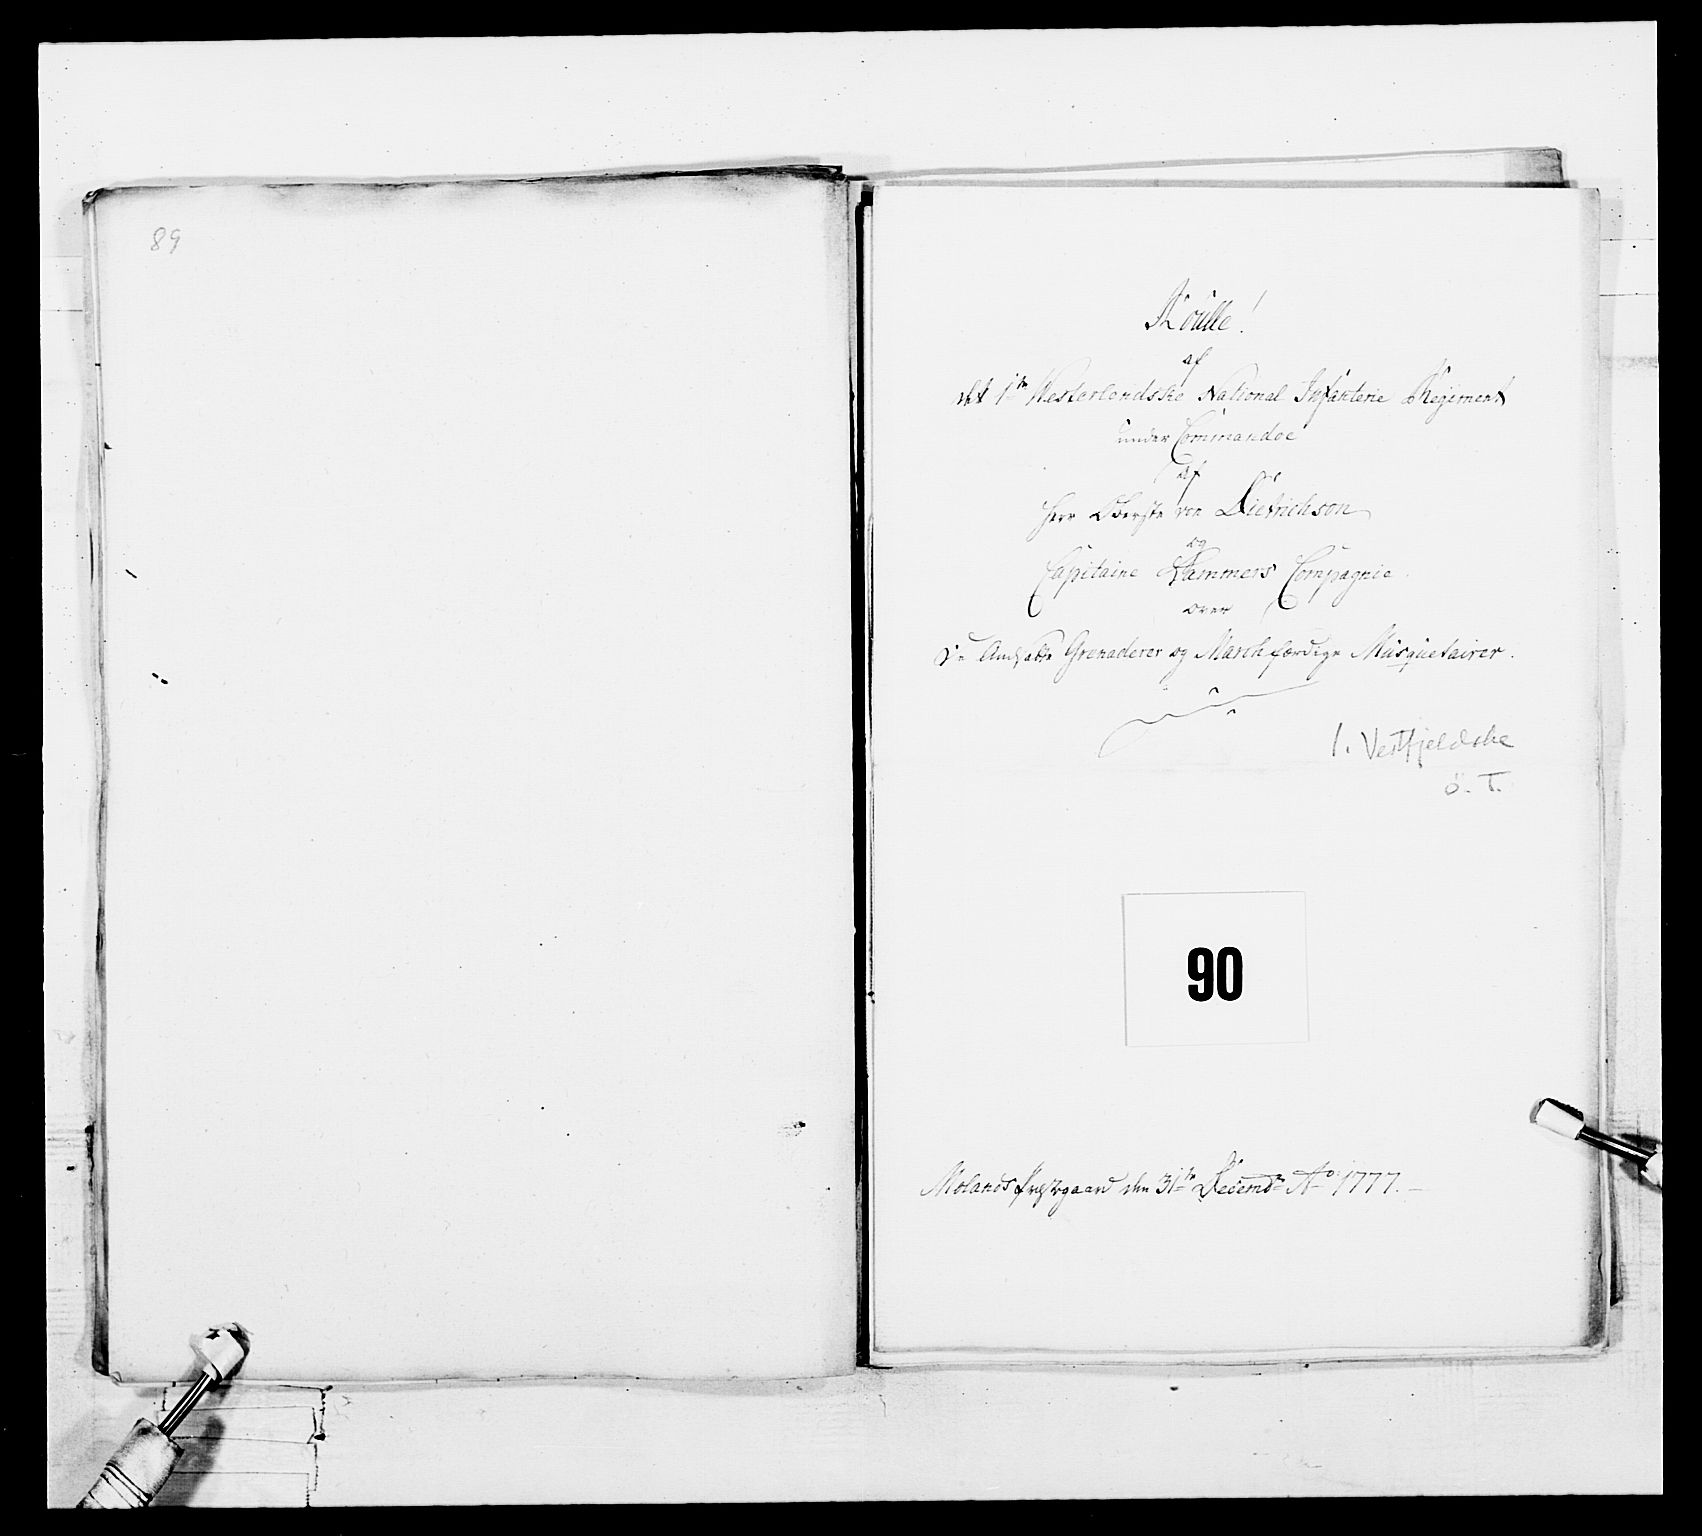 89
Roulle!
af
det 1ste Westerlendske National Infanterie Regiment
under Commandoe
af
Herr Oberste von Dietrichson
og
Capitaine Lammers Compagnie
over
De Ansatte Grenaderer og Marchfærdige Musquetairer.
1. Vestfjeldske
90
Molands Præstegaard den 31te Decembr Ao 1777.